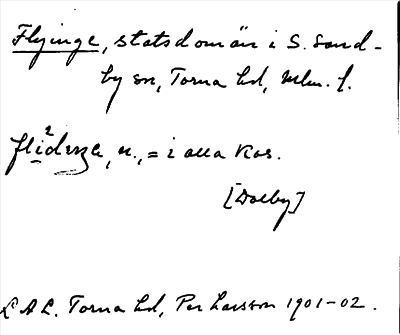 Flyinge, statsdomän i S. Sand-
by sn, Torna hd, Mlm. l.
n., = i alla kas.
[Dalby]
L A L. Torna hd, Per Larsson 1901-02.